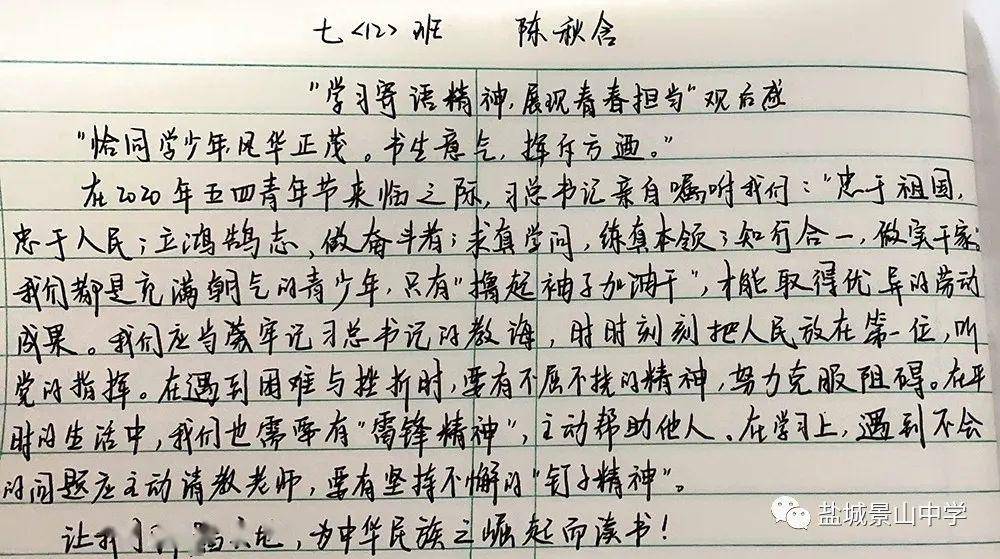 七〈12〉班 陈秋含
"学习寄语精神,展现青春担当"观后感
"恰同学少年,风华正茂。书生意气,挥斥方遒。"
在2020年五四青年节来临之际,习总书记亲自嘱咐我们:"忠于祖国,
忠于人民;立鸿鹄志,做奋斗者;求真学问,练真本领;知行合一,做实干家"
我们都是充满朝气的青少年,只有"撸起袖子加油干",才能取得优异的劳动
成果。我们应当牢记习总书记的教诲,时时刻刻把人民放在第一位,听
党的指挥。在遇到困难与挫折时,要有不屈不挠的精神,努力克服阻碍。在平
时的生活中,我们也需要有"雷锋精神",主动帮助他人。在学习上,遇到不会
的问题应主动请教老师,要有坚持不懈的"钉子精神"。
让我们 为中华民族之崛起而读书!
盐城景山中学